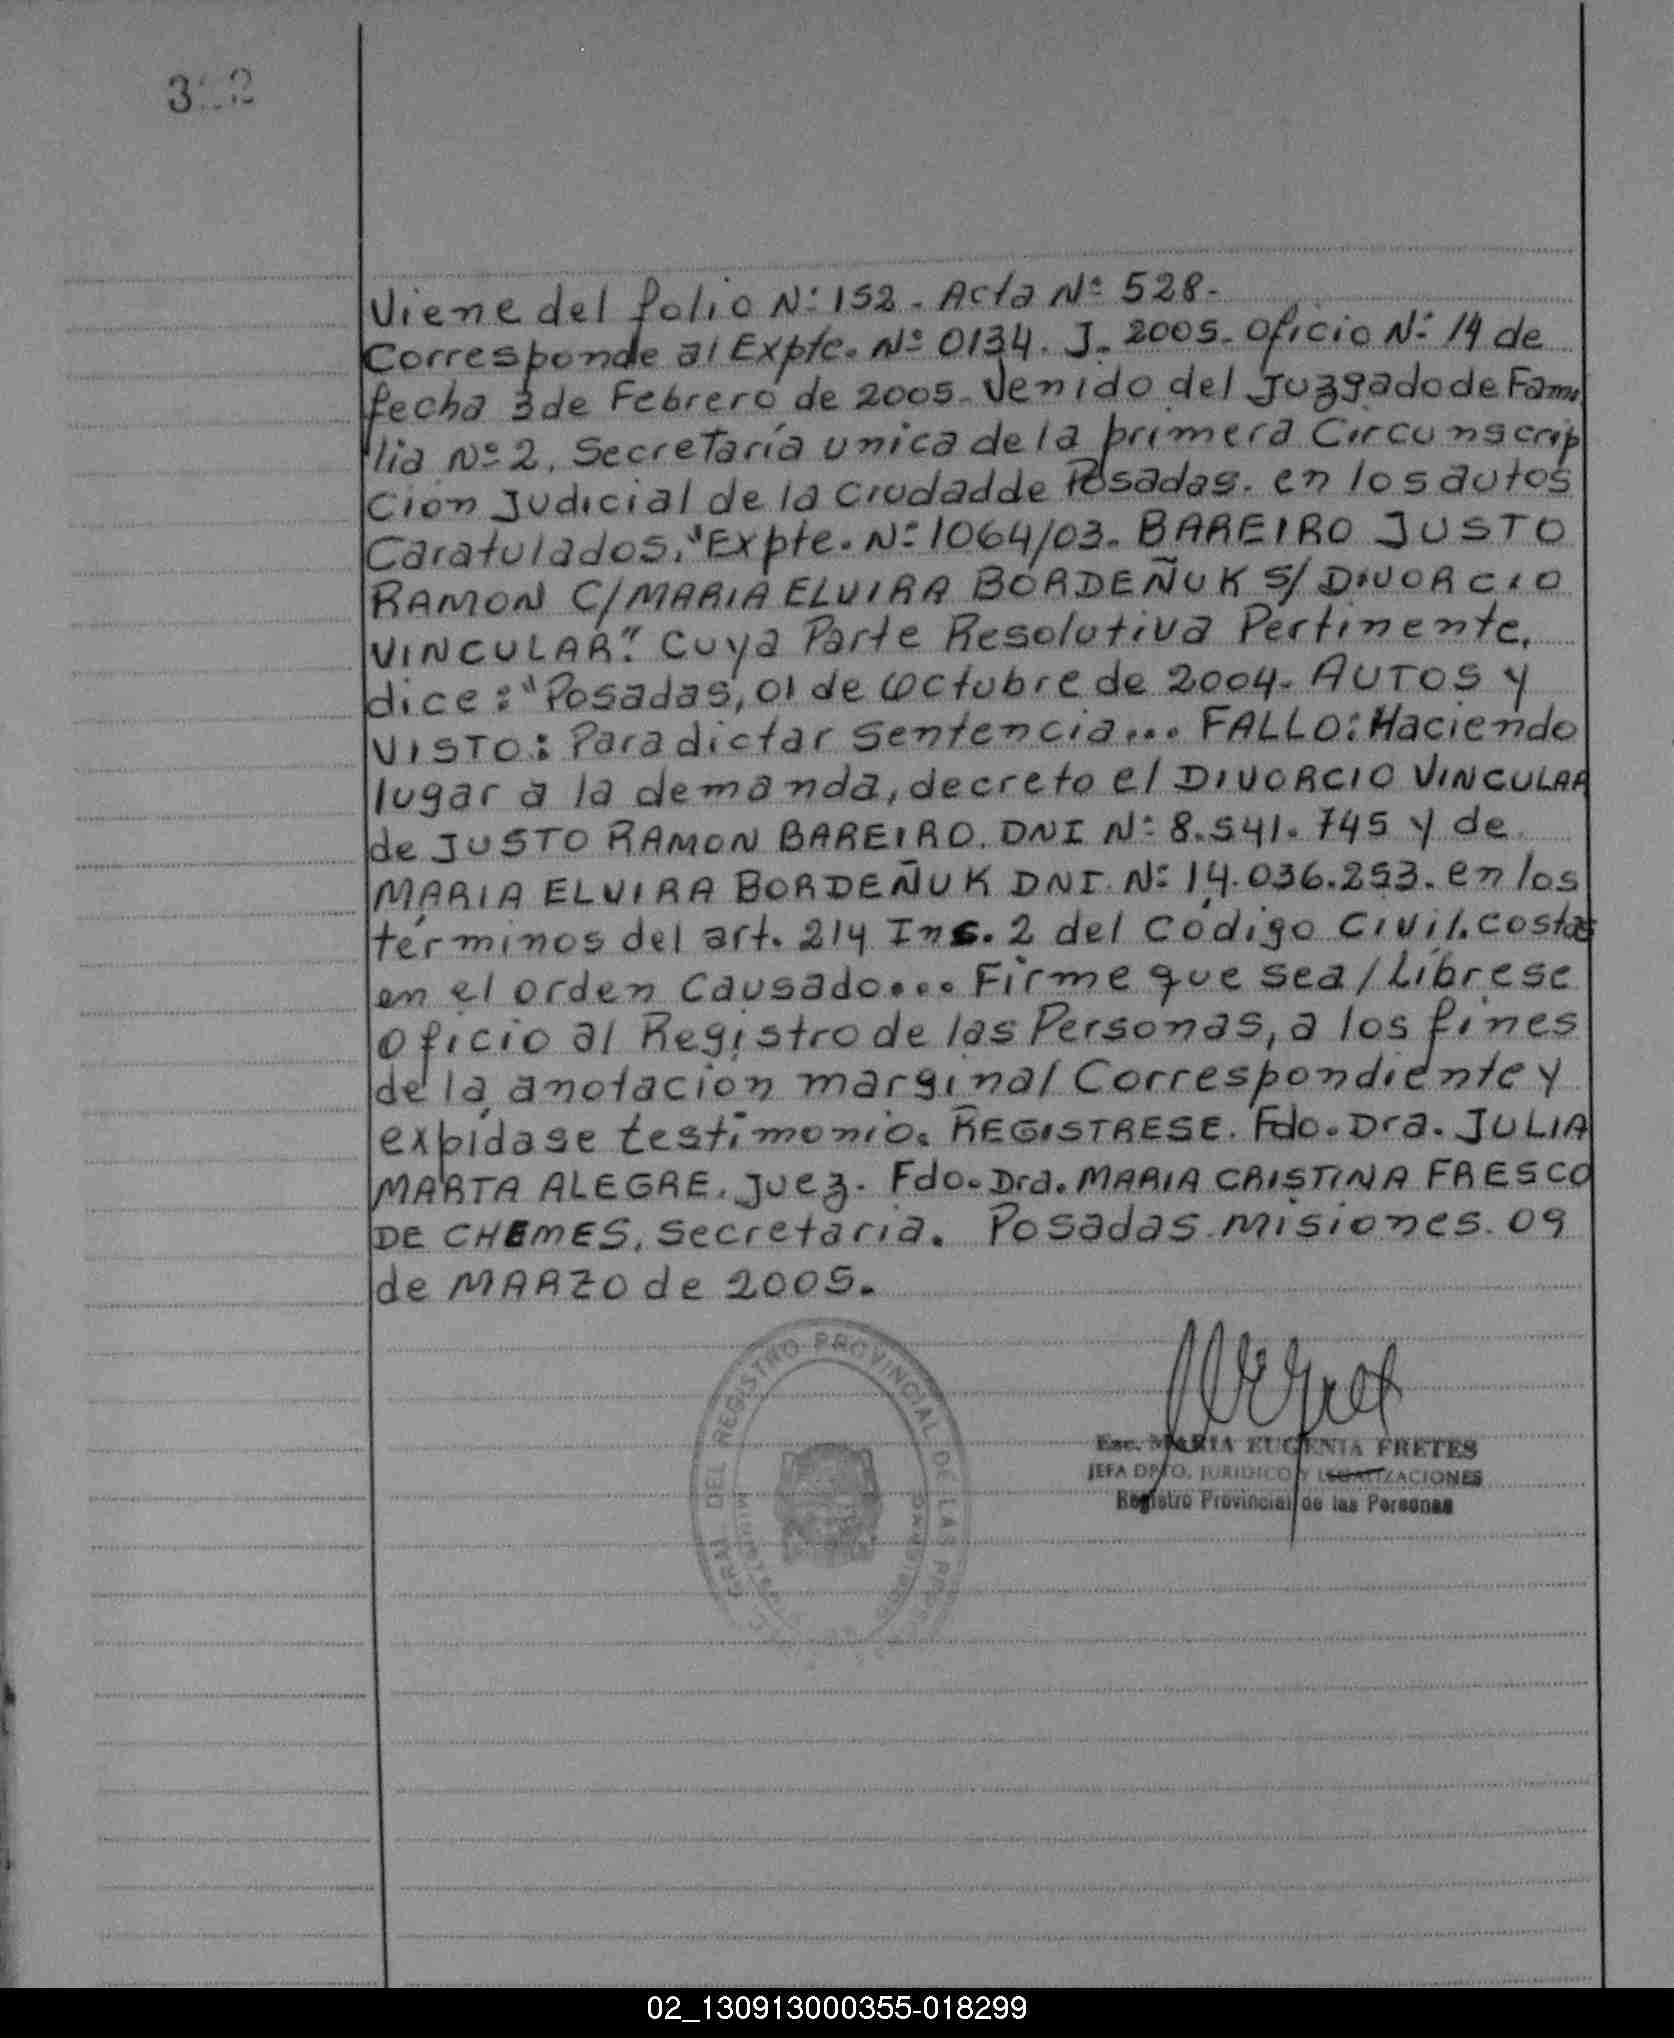 Viene del folio Nº 152 - Acta Nº 528-
Corresponde al Expte. Nº 0134. J. 2005. oficio Nº 14 de
fecha 3 de Febrero de 2005. Venido del Juzgado de Fami
lia Nº 2, Secretaría unica de la primera Circunscrip
ción Judicial de la Ciudad de Posadas. en los autos
Caratulados, "Expte. Nº 1064/03. BAREIRO JUSTO
RAMON C/ MARIA ELVIRA BORDEÑUK S/ DIVORCIO
VINCULAR". Cuya Parte Resolutiva Pertinente,
dice: "Posadas, 01 de Octubre de 2004. AUTOS Y
VISTO: Para dictar sentencia... FALLO: Haciendo
lugar a la demanda, decreto el DIVORCIO VINCULAR
de JUSTO RAMON BAREIRO. DNI Nº 8.541.745 y de
MARIA ELVIRA BORDEÑUK DNI. Nº 14.036.253. en los
términos del art. 214 Inc. 2 del Código Civil. costas
en el orden Causado... Firme que sea / Líbrese
Oficio al Registro de las Personas, a los fines
de la anotación marginal Correspondiente y
expídase testimonio. REGISTRESE. Fdo. Dra. JULIA
MARTA ALEGRE. Juez. Fdo. Dra. MARIA CRISTINA FRESCO
DE CHEMES. Secretaria. Posadas Misiones. 09
de MARZO de 2005.
DEL REGISTRO PROVINCIAL DE LAS
Esc. MARIA EUGENIA FRETES
JEFA DPTO. JURIDICO Y LEGALIZACIONES
Registro Provincial de las Personas
02_130913000355-018299